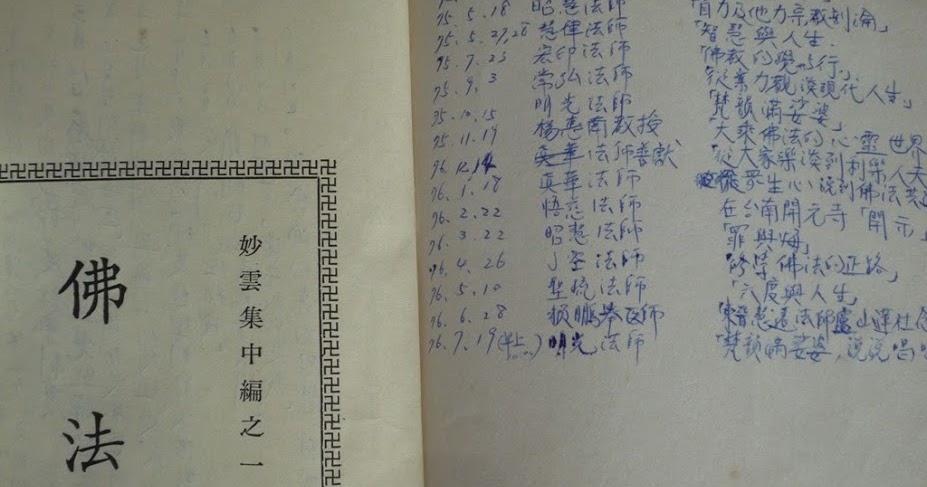 妙雲集中編之一
佛法
75.5.18 昭慧法師 「自力及他力宗教刻論」
75.5.27,28 慧偉法師 「智慧與人生」
75.7.23 宏印法師 「佛教的覺與行」
75.9.3 常弘法師 「從業力觀談現代人生」
明光法師 「梵韻滿娑婆」
75.10.15 楊惠南教授 大乘佛法的心靈世界
75.11.19 法師 「從大家樂談到利樂人天
76.1.18 真華法師 生心說到佛法
76.2.22 悟慈法師 在台南開元寺「開示」
76.3.22 昭慧法師 「罪與悔」
76.4.26 法師 「修學佛法的正路」
76.5.10 法師 「六度與人生」
76.6.28 楨鵬舉 師 慧遠法師廬山蓮社
76.7.19 明光法師 「梵韻滿娑婆,說說唱